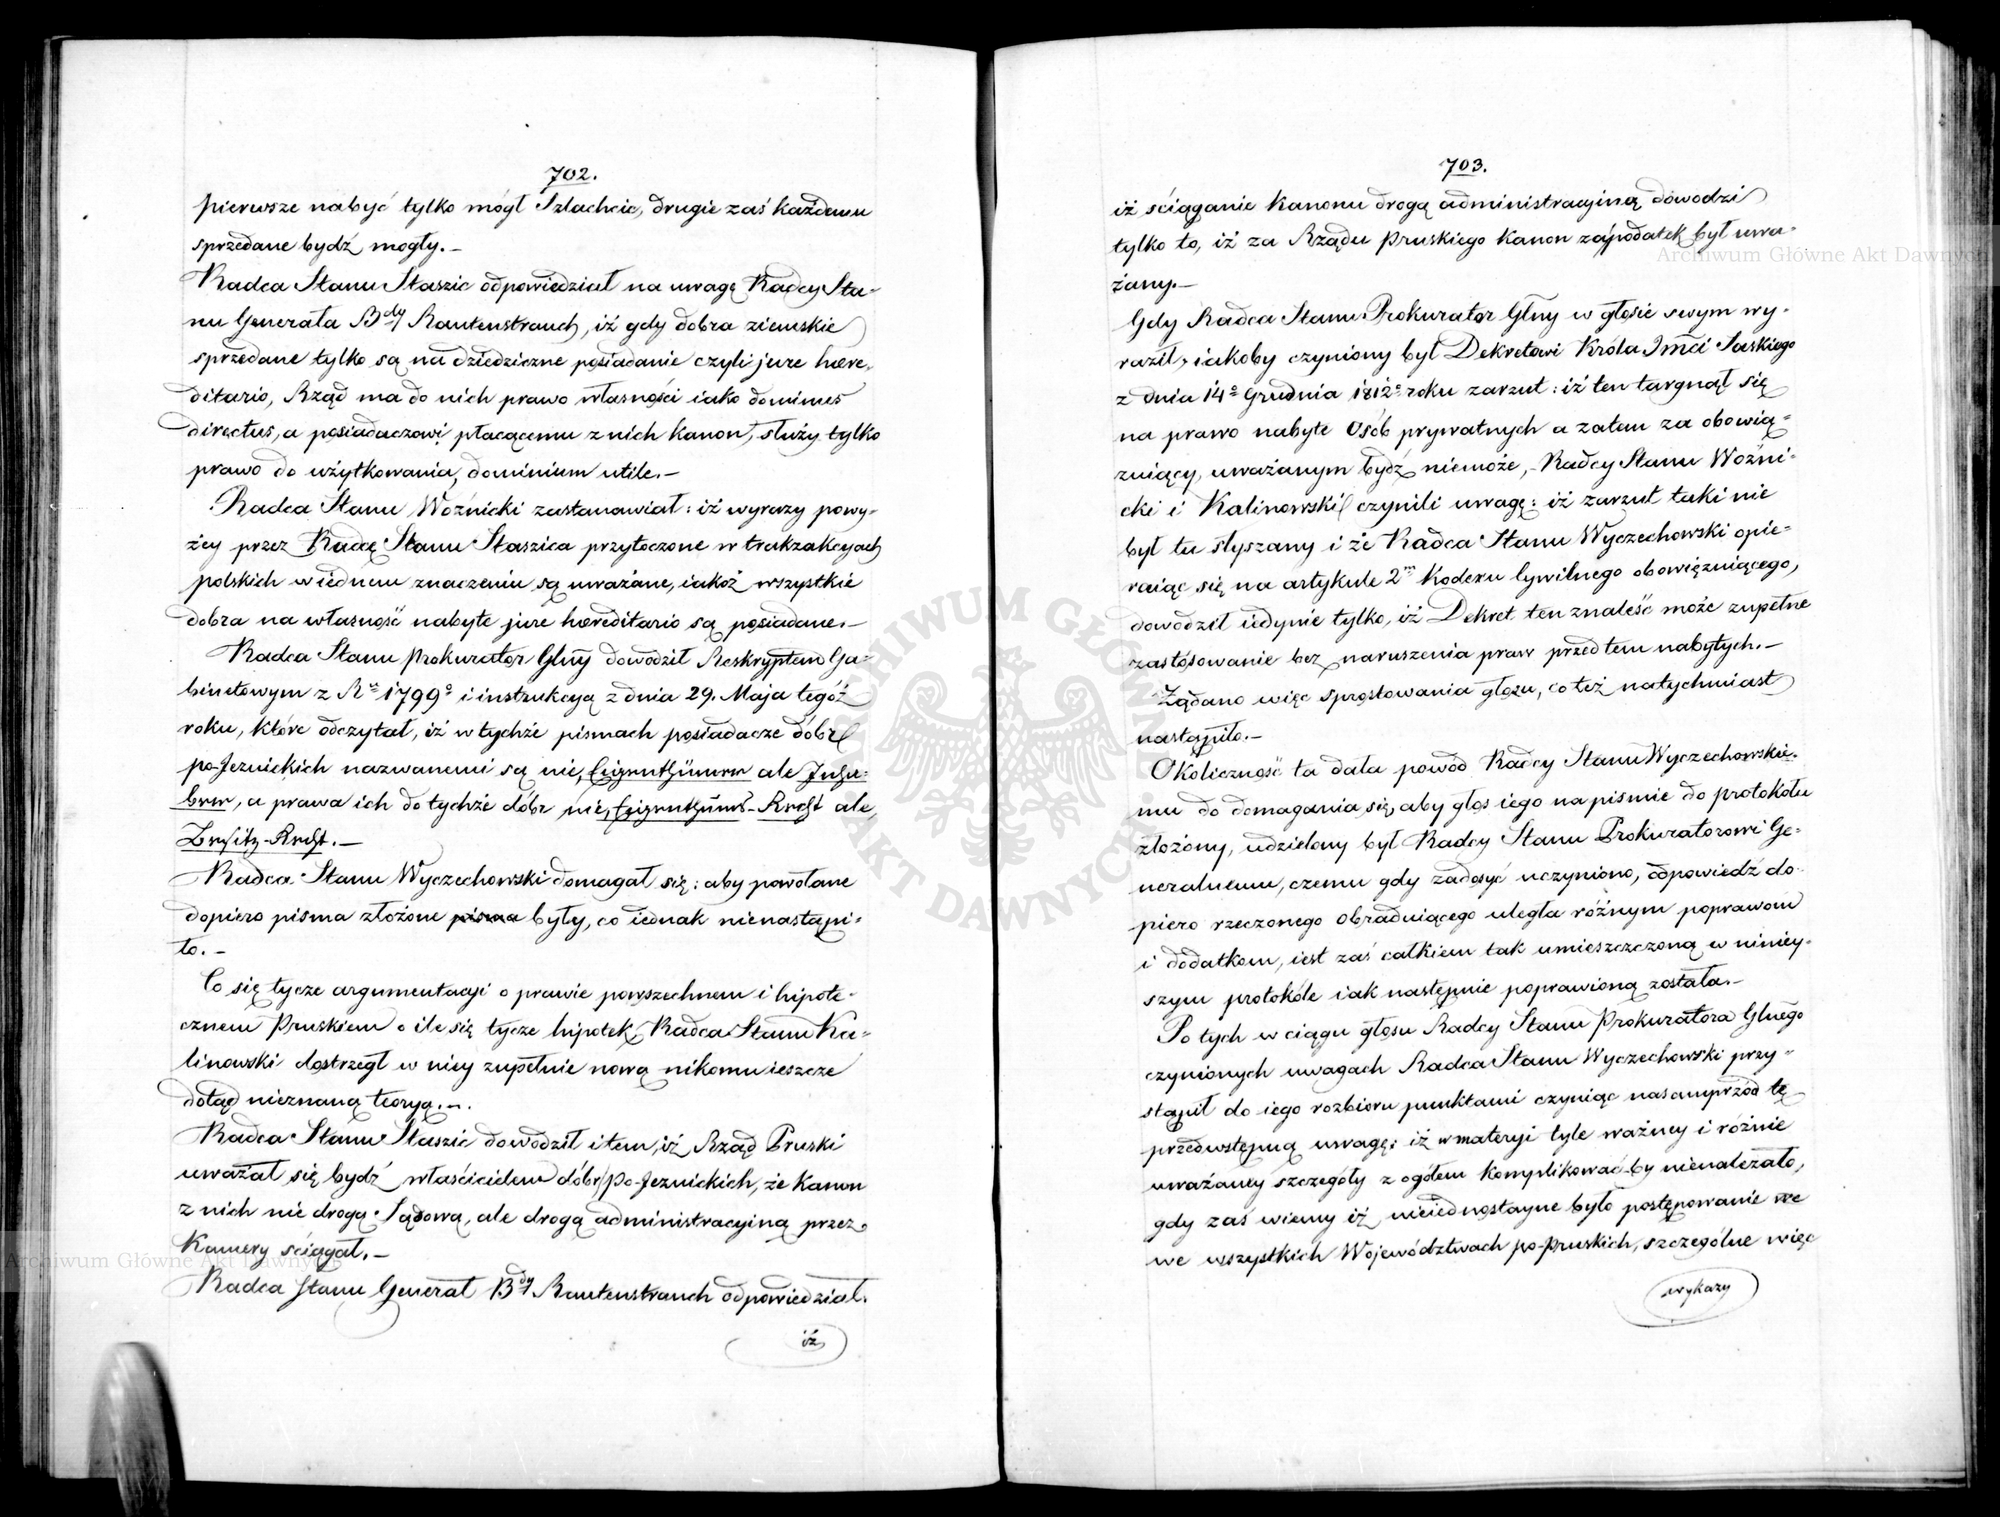 702.
pierwsze nabyć tylko mógł Szlachcic, drugie zaś każdemu
sprzedane bydź mogły.—
Radca Stanu Staszic odpowiedział na uwagę Radcy Sta-
nu Generała Bdy Rautenstrauch, iż gdy dobra ziemskie
sprzedane tylko są na dziedziczne posiadanie czyli jure hœre-
ditario, Rząd ma do nich prawo własności iako dominus
directus, a posiadaczowi płacącemu z nich kanon, służy tylko
prawo do użytkowania, dominium utile.—
Radca Stanu Woźnicki zastanawiał: iż wyrazy powy-
żey przez Radcę Stanu Staszica przytoczone w trakzakcyach
polskich w iednem znaczeniu są uważane, iakoż wszystkie
dobra na własność nabyte jure hœreditario są posiadane.—
Radca Stanu Prokurator Glny dowodził Reskryptem Ga-
binetowym z Ru 1799o i instrukcyą z dnia 29. Maja tegoż
roku, które odczytał, iż w tychże pismach posiadacze dóbr
po-Jeznickich nazwanemi są nie, Eigenthümer ale Inha-
ber, a prawa ich do tychże dóbr nie, Eigenthums-Recht ale,
Besitz-Recht.—
Radca Stanu Wyczechowski domagał się: aby powołane
dopiero pisma złożone pisma były, co iednak nienastąpi-
ło.—
Co się tycze argumentacyi o prawie powszechnem i hipote-
cznem Pruskiem o ile się tycze hipotek, Radca Stanu Ka-
linowski dostrzegł w niey zupełnie nową nikomu ieszcze
dotąd nieznaną teoryą.—.
Radca Stanu Staszic dowodził i tem, iż Rząd Pruski
uważał się bydź właścicielem dóbr po-Jeznickich, że kanon
z nich nie drogą Sądową, ale drogą administracyiną przez
Kamery ściągał.—
Radca Stanu Generał Bdy Rautenstrauch odpowiedział.
iż
703.
iż ściąganie kanonu drogą administracyiną dowodzi
tylko to, iż za Rządu Pruskiego kanon za podatek był uwa-
żany.—
Gdy Radca Stanu Prokurator Glny w głosie swym wy-
raził, iakoby czyniony był Dekretowi Króla Jmci Saskiego
z dnia 14o Grudnia 1812o roku zarzut: iż ten targnął się
na prawo nabyte Osób prywatnych a zatem za obowią-
zuiący, uważanym bydź niemoże,- Radcy Stanu Woźni-
cki i Kalinowski czynili uwagę: iż zarzut taki nie
był tu słyszany i że Radca Stanu Wyczechowski opie-
raiąc się na artykule 2m Kodexu Cywilnego obowięzuiącego,
dowodził iedynie tylko, iż Dekret ten znaleść może zupełne
zastósowanie bez naruszenia praw przed tem nabytych.—
Żądano więc sprostowania głosu, co też natychmiast
nastąpiło.—
Okoliczność ta dała powód Radcy Stanu Wyczechowskie-
mu do domagania się, aby głos iego na pismie do protokółu
złożony, udzielony był Radcy Stanu Prokuratorowi Ge-
neralnemu, czemu gdy zadosyć uczyniono, odpowiedź do-
piero rzeczonego Obraduiącego uległa różnym poprawom
i dodatkom, iest zaś całkiem tak umieszczczoną w niniey-
szym protokóle iak następnie poprawioną została.—
Po tych w ciągu głosu Radcy Stanu Prokuratora Glnego
czynionych uwagach Radca Stanu Wyczechowski przy-
stąpił do iego rozbioru punktami czyniąc nasamprzód tę
przedwstępną uwagę: iż w materyi tyle ważney i różnie
uważaney szczegóły z ogółem komplikować-by nienależało,
gdy zaś wiemy iż nieiednostayne było postępowanie we
we wszystkich Województwach po-Pruskich, szczególne więc
wykazy
Archiwum Główne Akt Dawnych
Archiwum Główne Akt Dawnych
ARCHIWUM GŁÓWNE AKT DAWNYCH